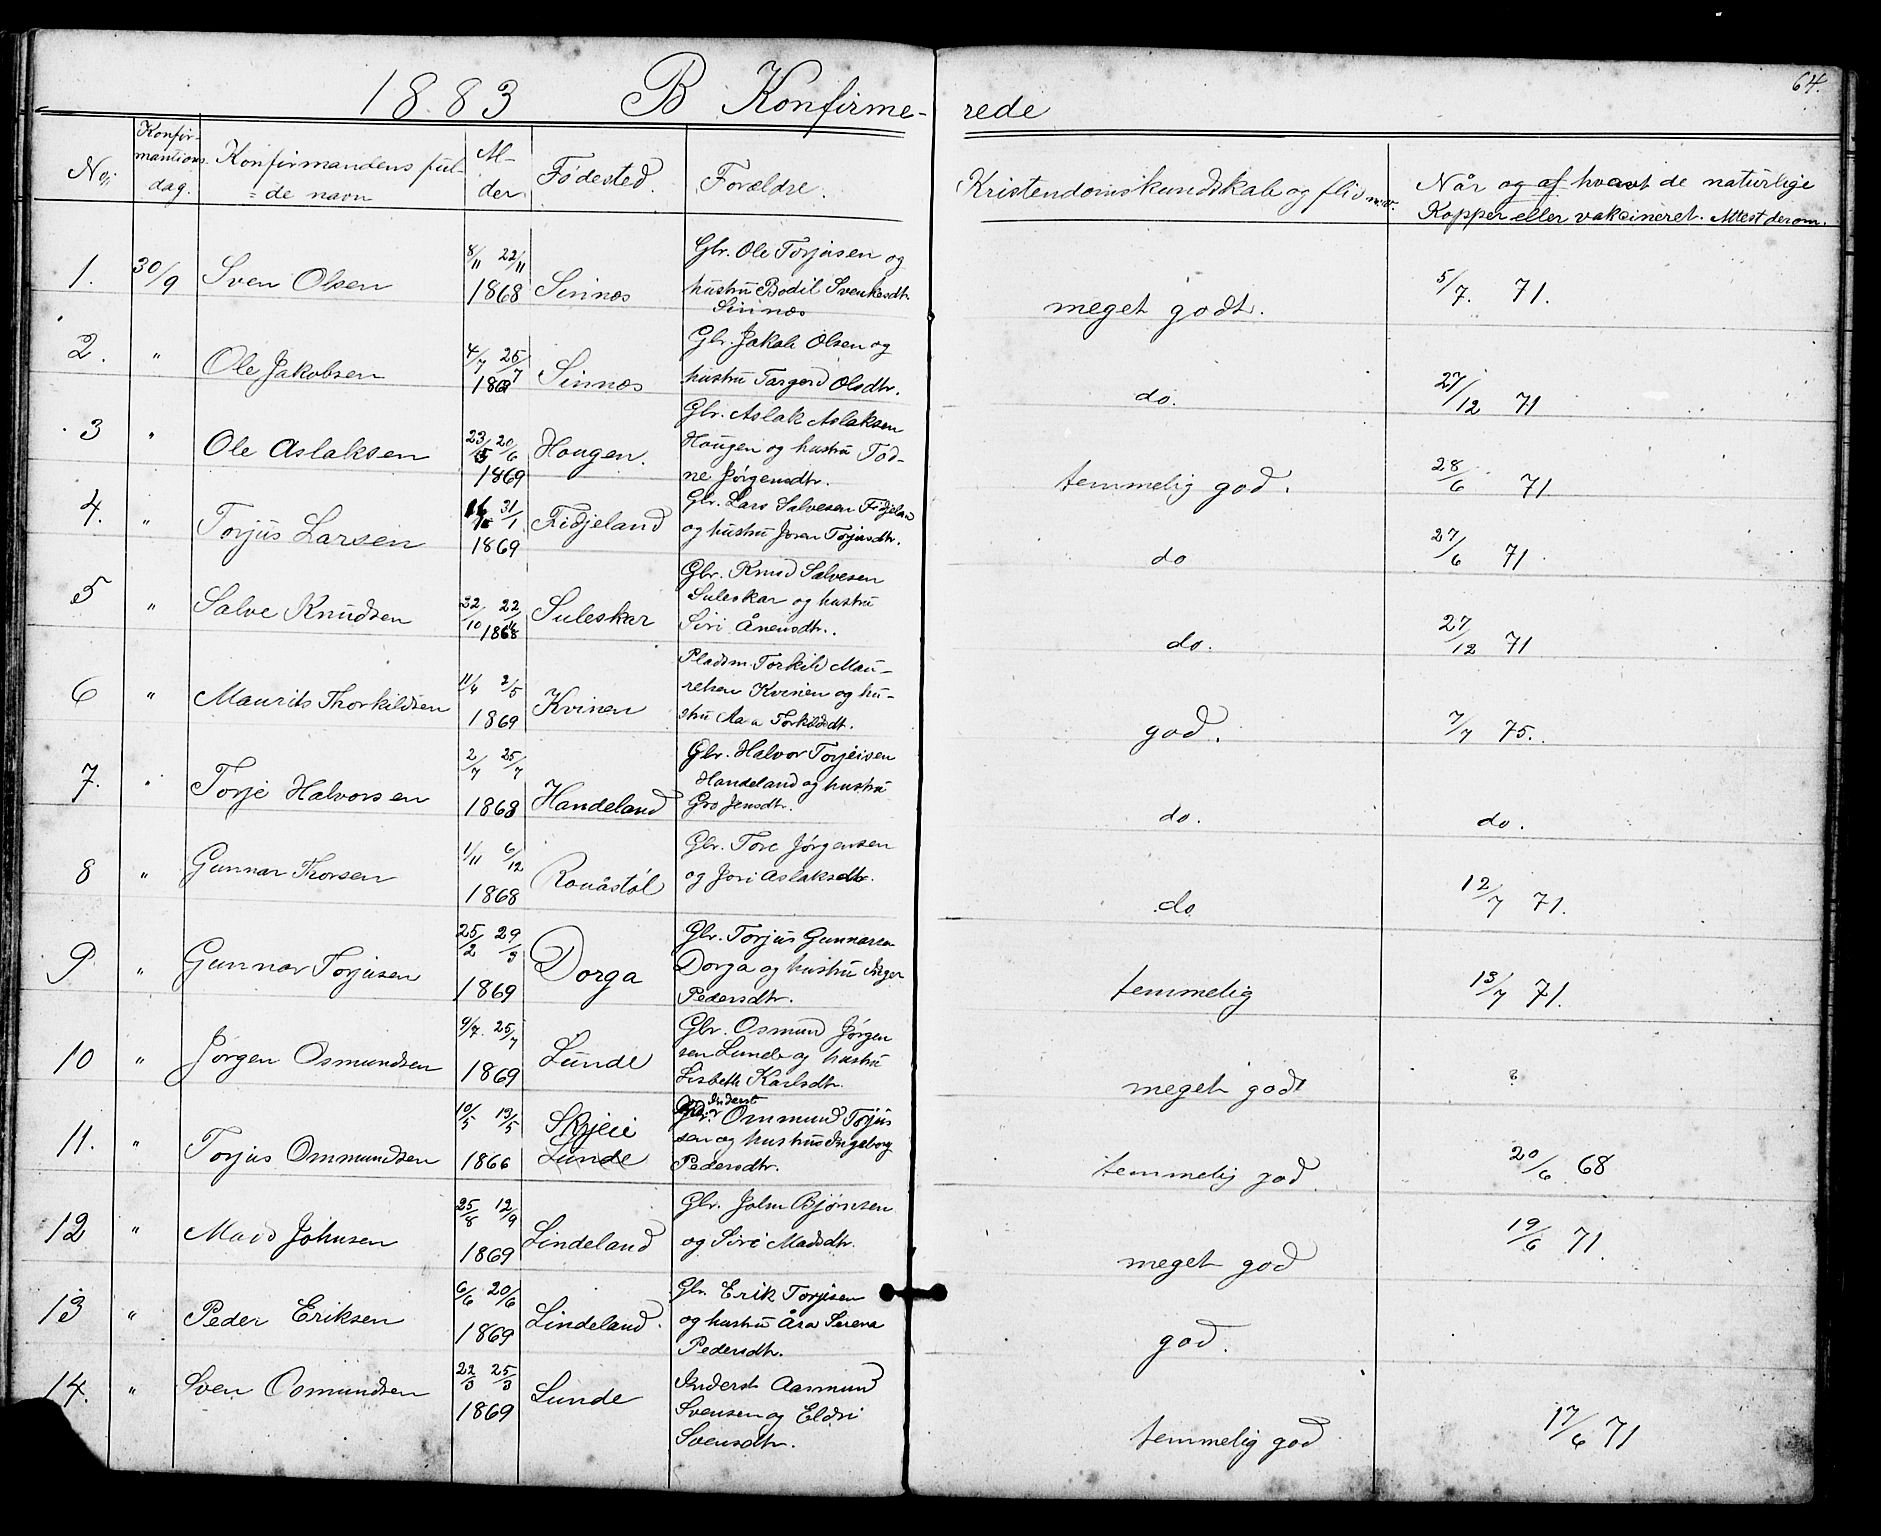 64.
1883 B Konfirme-rede
No: Konfirmantions dag. Konfirmandens ful=de navn Al-der Fødested. Forældre. Kristendomskundskab og flid m.v. Når og af hvem de naturlige Kopper eller vaksineret. Attest derom.
1. 30/9 Sven Olsen 8/11 22/11 1868 Sinnes Gbr. Ole Torjusen og
hustru Bodil Svenkesdtr.
Sinnes
meget godt. 5/7. 71.
2. " Ole Jakobsen 4/7 25/7 Sinnes Gbr. Jakob Olsen og
hustru Targerd Olsdtr.
do. 27/12 71
3 " Ole Aslaksen 23/5 20/6 1869 Hougen. Gbr. Aslak Aslaksen
Hougen og hustru Tod-
ne Jørgensdtr.
temmelig god. 28/6 71
4. " Torjus Larsen 31/1 1869 Fidjeland Gbr. Lars Salvesen Fidjelan
og hustru Joren Torjusdtr.
do 27/6 71
5 " Salve Knudsen 22/10 22/11 1868 Suleskar Gbr. Knud Salvesen
Suleskar og hustru
Siri Ånensdtr.
do. 27/12 71
6 " Maurits Thorkildsen 11/4 2/5 1869 Kvinen Pladsm. Torkild Mau-
Kvinen og hu-
stru Aa a Torkildsdt.
god. 7/7 75.
7. " Torje Halvorsen 2/7 25/7 1868 Handeland Gbr. Halvor Torjeisen
Handeland og hustru
Gro Jensdtr.
do. do.
8 " Gunnar Thorsen 1/11 6/12 1868 Rouåstøl Gbr. Tore Jørgensen
og Jori Aslaksdtr.
do 12/7 71.
9 " Gunnar Torjusen 25/2 29/3 1869 Dorga Gbr. Torjus Gunnarsen
Dorga og hustru Inger
Pedersdtr.
temmelig 13/7 71.
10 " Jørgen Osmundsen 9/7. 25/7 1869 Lunde Gbr. Osmund Jørgen
sen Lunde og hustru
Lisbeth Karlsdtr.
meget godt ?
11. " Torjus Ommundsen 10/5 13/5 1866 Skjeie
Lunde
Inderst
Ommund Torjus
sen og hustru Ingeborg
Pedersdtr.
temmelig god. 20/6. 68
12 " Mads Johnsen 25/8 12/9 1869 Lindeland Gbr. John Bjørnsen
og Siri Madsdtr.
meget god 19/6 71.
13 " Peder Eriksen 6/6 20/6 1869 Lindeland. Gbr. Erik Torjusen
og hustru Åsa Serena
Pedersdtr.
god.
14. " Sven Osmundsen 22/3 25/3 1869 Lunde Inderst Aasmund
Svensen og Eldri
Svensdtr.
temmelig god 17/6 71